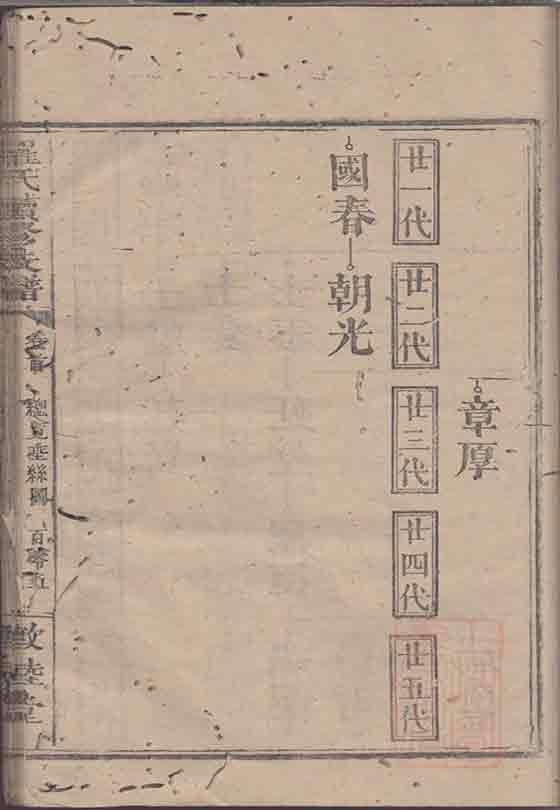 章厚
廿一代
廿二代
廿三代
廿四代
廿五代
國春
朝光
羅氏續修族譜
卷首
總覽垂絲圖
一百零五
敦睦堂